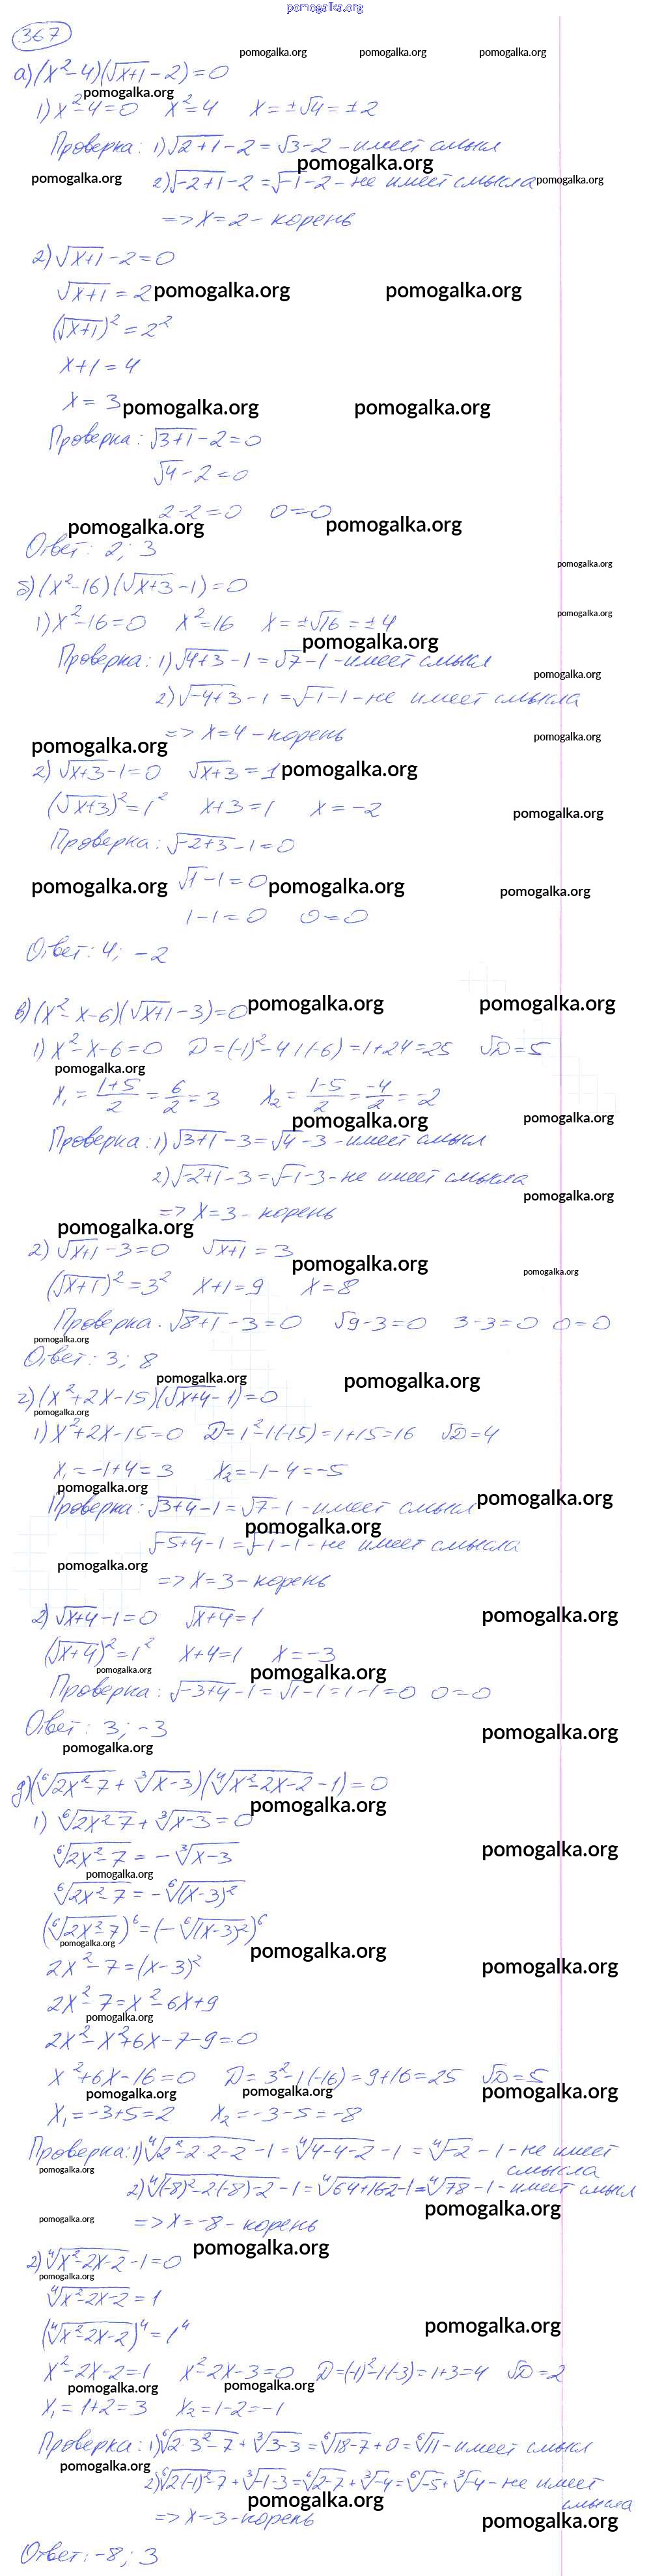 pomogalka.org
367
pomogalka.org pomogalka.org pomogalka.org
а) (x²-4)(√(x+1) - 2) = 0
pomogalka.org
1) x²-4=0 x²=4 x=±√4=±2
Проверка: 1) √(2+1) - 2 = √3-2 - имеет смысл
pomogalka.org
pomogalka.org 2) √(-2+1) - 2 = √-1 - 2 - не имеет смысла pomogalka.org
=> x=2 - корень
2) √(x+1) - 2 = 0
√(x+1) = 2 pomogalka.org pomogalka.org
(√(x+1))² = 2²
x+1 = 4
x = 3 pomogalka.org pomogalka.org
Проверка: √(3+1) - 2 = 0
√4 - 2 = 0
2-2=0 0=0
pomogalka.org pomogalka.org
Ответ: 2; 3
pomogalka.org
б) (x²-16)(√(x+3) - 1) = 0
1) x²-16=0 x²=16 x=±√16=±4 pomogalka.org
pomogalka.org
Проверка: 1) √(4+3) - 1 = √7 - 1 - имеет смысл
pomogalka.org
2) √(-4+3) - 1 = √-1 - 1 - не имеет смысла
=> x=4 - корень pomogalka.org
pomogalka.org
2) √(x+3) - 1 = 0 √(x+3) = 1 pomogalka.org
(√(x+3))² = 1² x+3=1 x=-2 pomogalka.org
Проверка: √(-2+3) - 1 = 0
pomogalka.org √1 - 1 = 0 pomogalka.org pomogalka.org
1-1=0 0=0
Ответ: 4; -2
в) (x²-x-6)(√(x+1) - 3) = 0 pomogalka.org pomogalka.org
1) x²-x-6=0 D=(-1)²-4·(-6)=1+24=25 √D=5
pomogalka.org
x₁ = (1+5)/2 = 6/2 = 3 x₂ = (1-5)/2 = -4/2 = -2
pomogalka.org pomogalka.org
Проверка: 1) √(3+1) - 3 = √4 - 3 - имеет смысл
2) √(-2+1) - 3 = √-1 - 3 - не имеет смысла
pomogalka.org
=> x=3 - корень
pomogalka.org
2) √(x+1) - 3 = 0 √(x+1) = 3
pomogalka.org pomogalka.org
(√(x+1))² = 3² x+1=9 x=8
Проверка. √(8+1) - 3 = 0 √9-3=0 3-3=0 0=0
pomogalka.org
Ответ: 3; 8
pomogalka.org pomogalka.org
г) (x²+2x-15)(√(x+4) - 1) = 0
pomogalka.org
1) x²+2x-15=0 D=1²-1(-15)=1+15=16 √D=4
x₁=-1+4=3 x₂=-1-4=-5
pomogalka.org pomogalka.org
Проверка: √(3+4) - 1 = √7 - 1 - имеет смысл
pomogalka.org
√(-5+4) - 1 = √-1 - 1 - не имеет смысла
pomogalka.org
=> x=3 - корень
2) √(x+4) - 1 = 0 √(x+4) = 1 pomogalka.org
(√(x+4))² = 1² x+4=1 x=-3
pomogalka.org pomogalka.org
Проверка: √(-3+4) - 1 = √1 - 1 = 1-1=0 0=0
Ответ: 3; -3 pomogalka.org
pomogalka.org
д) (⁶√(2x²-7) + ³√(x-3))(⁴√(x²-2x-2) - 1) = 0
pomogalka.org
1) ⁶√(2x²-7) + ³√(x-3) = 0
⁶√(2x²-7) = -³√(x-3) pomogalka.org
pomogalka.org
⁶√(2x²-7) = -⁶√((x-3)²)
(⁶√(2x²-7))⁶ = (-⁶√((x-3)²))⁶
pomogalka.org pomogalka.org
2x²-7=(x-3)² pomogalka.org
2x²-7=x²-6x+9
pomogalka.org
2x²-x²+6x-7-9=0
x²+6x-16=0 D=3²-1(-16)=9+16=25 √D=5
pomogalka.org pomogalka.org pomogalka.org
x₁=-3+5=2 x₂=-3-5=-8
Проверка: 1) ⁴√(2²-2·2-2) - 1 = ⁴√(4-4-2) - 1 = ⁴√-2 - 1 - не имеет
смысла
pomogalka.org
2) ⁴√((-8)²-2(-8)-2) - 1 = ⁴√(64+16-2) - 1 = ⁴√78 - 1 - имеет смысл
pomogalka.org
pomogalka.org => x=-8 - корень
pomogalka.org
2) ⁴√(x²-2x-2) - 1 = 0
pomogalka.org
⁴√(x²-2x-2) = 1
pomogalka.org
(⁴√(x²-2x-2))⁴ = 1⁴
x²-2x-2=1 x²-2x-3=0 D=(-1)²-1(-3)=1+3=4 √D=2
pomogalka.org pomogalka.org
x₁=1+2=3 x₂=1-2=-1
Проверка: 1) ⁶√(2·3²-7) + ³√(3-3) = ⁶√(18-7) + 0 = ⁶√11 - имеет смысл
pomogalka.org
2) ⁶√(2(-1)²-7) + ³√(-1-3) = ⁶√(2-7) + ³√-4 = ⁶√-5 + ³√-4 - не имеет
смысла
pomogalka.org
=> x=3 - корень pomogalka.org
Ответ: -8; 3